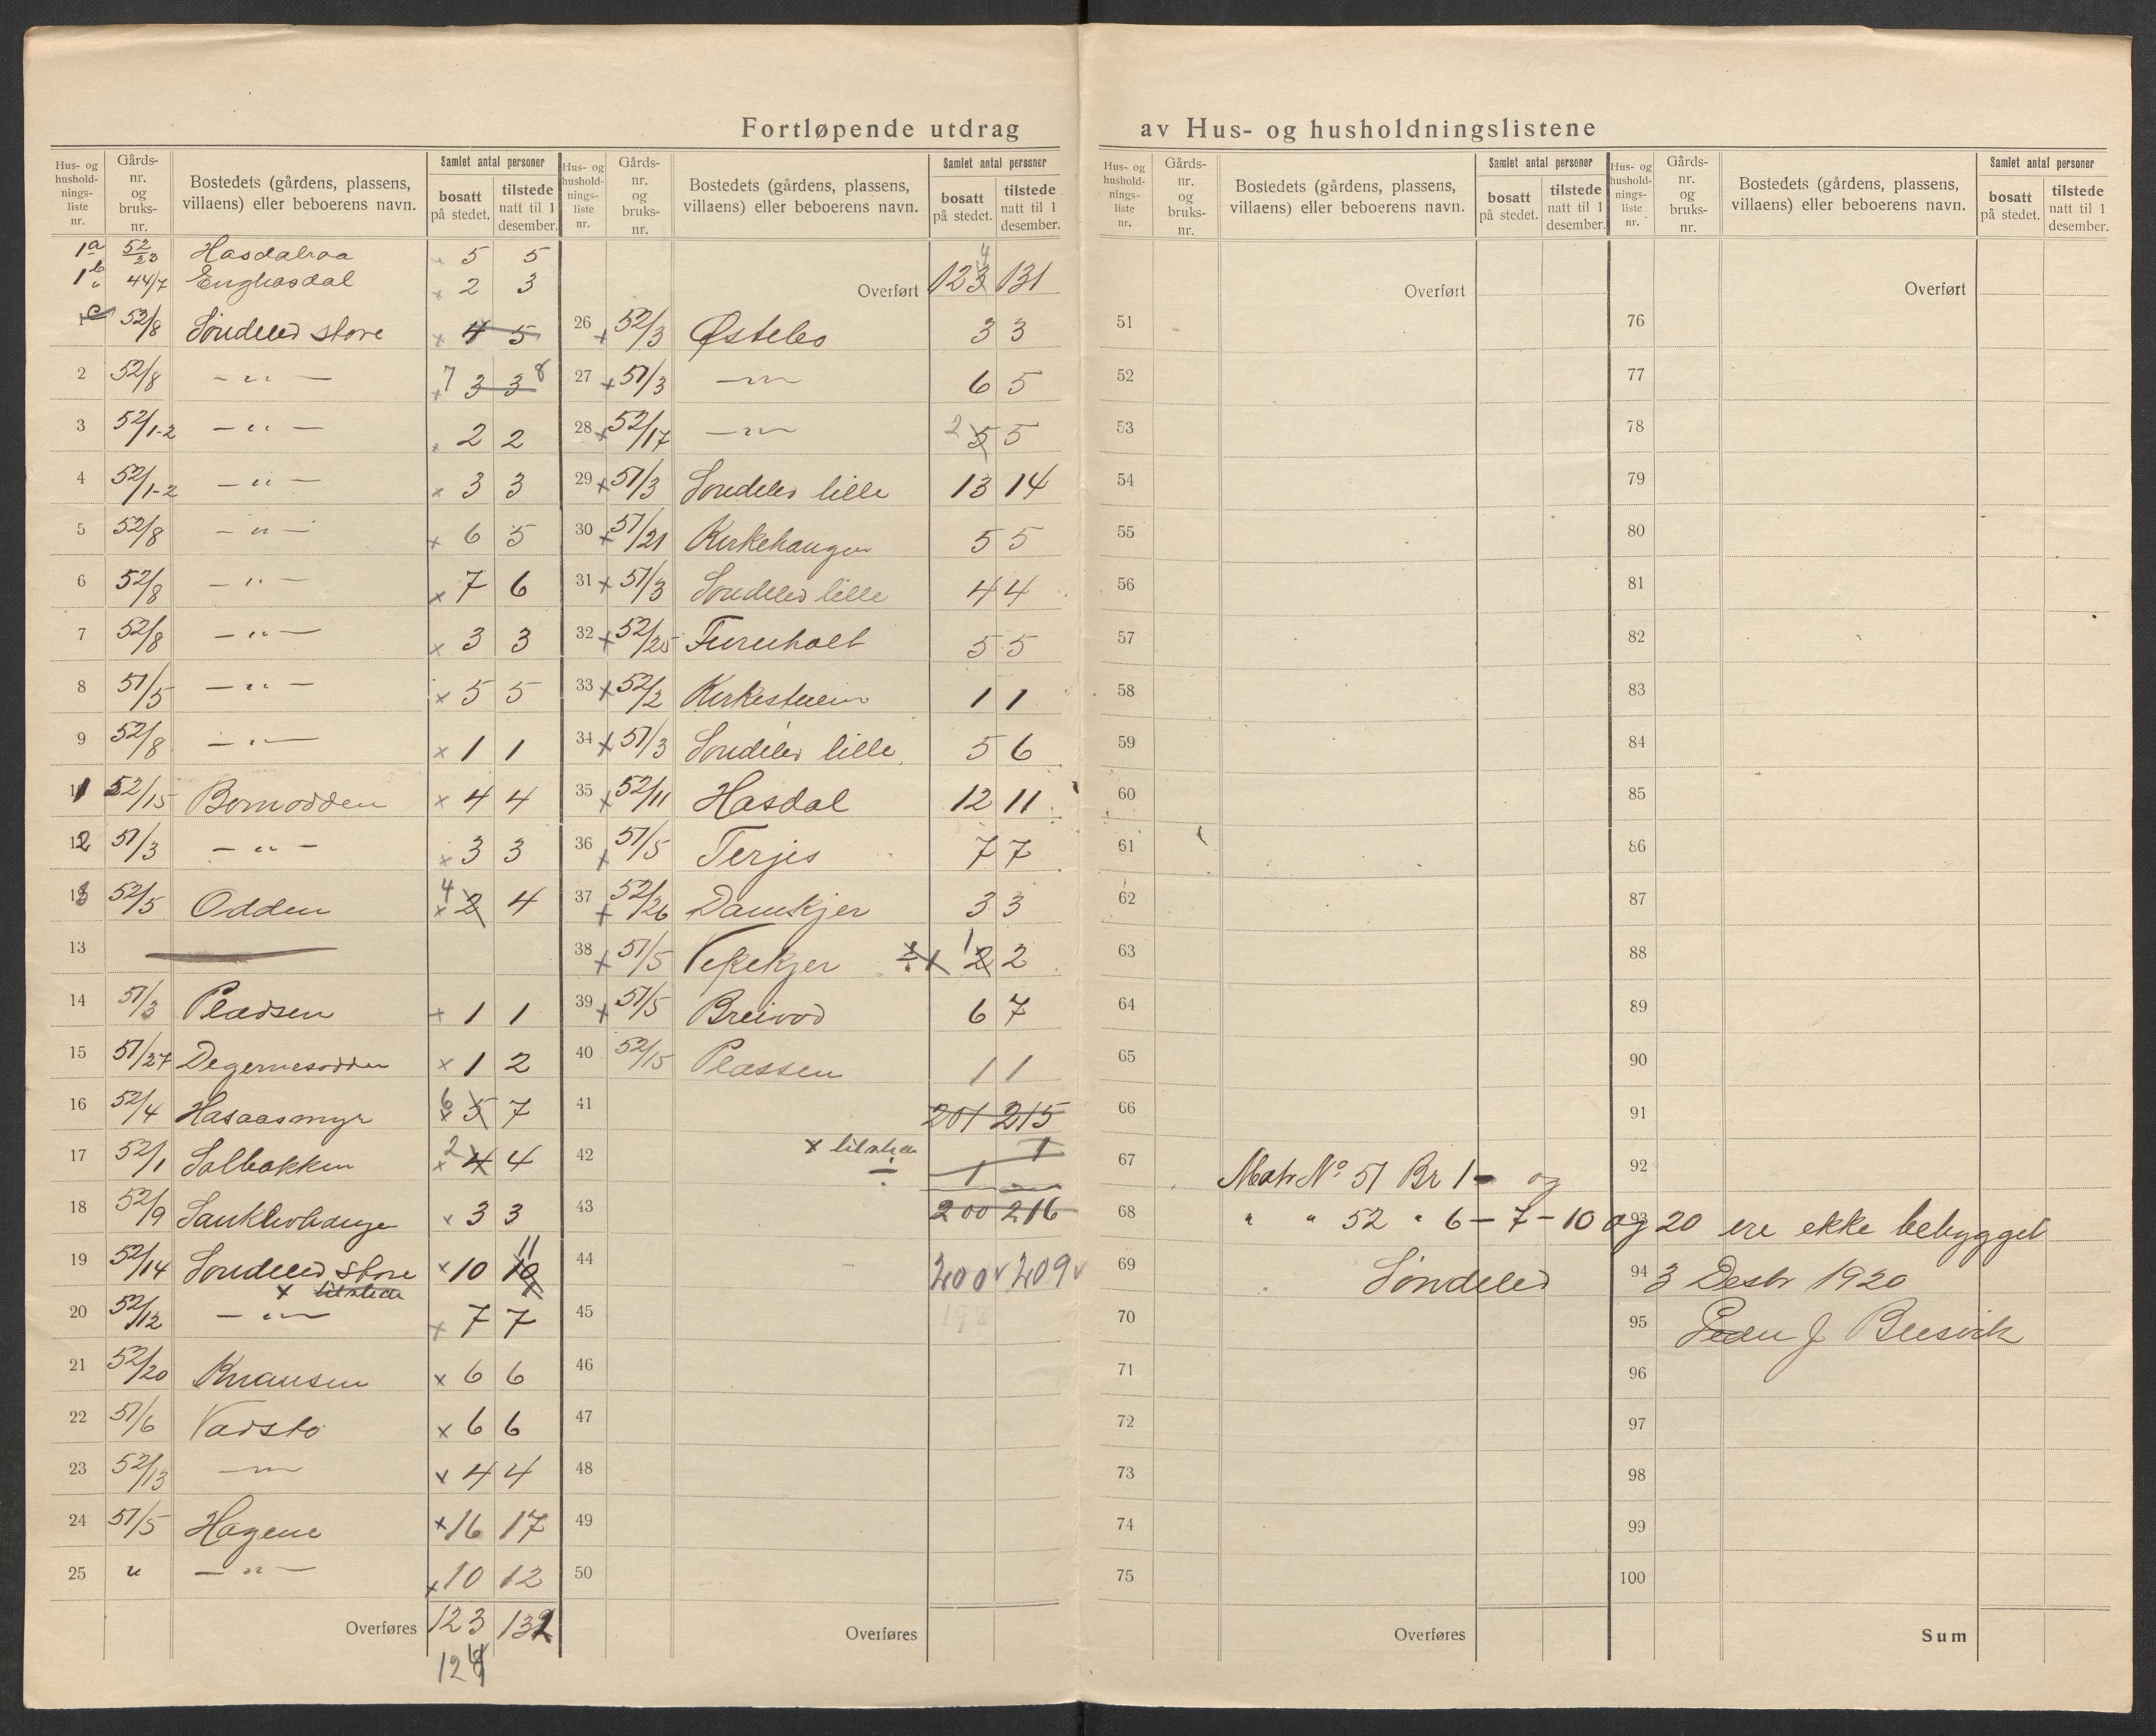 Fortløpende utdrag av Hus- og husholdningslistene
Hus- og husholdningsliste nr. | Gårds- nr. og bruks- nr. | Bostedets (gårdens, plassens, villaens) eller beboerens navn. | Samlet antal personer bosatt på stedet. | tilstede natt til 1 desember.
1a 52/23 Hasdalraa 5 5
1b 44/7 Enghasdal × 2 3
1c 52/8 Söndeled store × 4 5
2 52/8 — " — × 7 3 3 8
3 52/1-2 — " — × 2 2
4 52/1-2 — " — × 3 3
5 52/8 — " — × 6 5
6 52/8 — " — × 7 6
7 52/8 — " — × 3 3
8 51/5 — " — × 5 5
9 52/8 — " — × 1 1
11 52/15 Bomodden × 4 4
12 51/3 — " — × 3 3
13 52/5 Odden × 4 2 4
13
14 51/3 Pladsen × 1 1
15 51/27 Degernesodden × 1 2
16 52/4 Hasaasmyr × 6 5 7
17 52/1 Solbakken × 2 4 4
18 52/9 × 3 3
19 52/14 Söndeled store × 10 10 11
× tilstede
20 52/12 — " — × 7 7
21 52/20 Knausen × 6 6
22 51/6 Vadsto × 6 6
23 52/13 — " — × 4 4
24 51/5 Hagene × 16 17
25 " — " — × 10 12
Overføres 123 132
124
Hus- og husholdningsliste nr. | Gårds- nr. og bruks- nr. | Bostedets (gårdens, plassens, villaens) eller beboerens navn. | Samlet antal personer bosatt på stedet. | tilstede natt til 1 desember.
Overført 123 4 131
26 × 52/3 Østebo 3 3
27 × 51/3 — " — 6 5
28 × 52/17 — " — 2 5 5
29 × 51/3 Söndeled lille 13 14
30 × 51/21 Kirkehaugen 5 5
31 × 51/3 Söndeled lille 4 4
32 × 52/25 Furuholt 5 5
33 × 52/2 1 1
34 × 51/3 Söndeled lille 5 6
35 × 52/11 Hasdal 12 11
36 × 51/5 Terjes 7 7
37 × 52/26 Damkjer 3 3
38 × 51/5 1 2 2
39 × 51/5 Breivod 6 7
40 52/15 Plassen 1 1
41 201 215
42 × tilstede 1
÷ 1
43 200 216
44 200 v 209 v
45 198
46
47
48
49
50
Overføres
Hus- og husholdningsliste nr. | Gårds- nr. og bruks- nr. | Bostedets (gårdens, plassens, villaens) eller beboerens navn. | Samlet antal personer bosatt på stedet. | tilstede natt til 1 desember.
Overført
51
52
53
54
55
56
57
58
59
60
61
62
63
64
65
66
67
68
69
70
71
72
73
74
75
Overføres
Hus- og husholdningsliste nr. | Gårds- nr. og bruks- nr. | Bostedets (gårdens, plassens, villaens) eller beboerens navn. | Samlet antal personer bosatt på stedet. | tilstede natt til 1 desember.
Overført
76
77
78
79
80
81
82
83
84
85
86
87
88
89
90
91
92
93
94
95
96
97
98
99
100
Sum
Matr Nº 51 Br 1 - og
" " 52 " 6 - 7 - 10 og 20 ere ekke bebygget
Söndeled 3 Desbr 1920
Peder J Busvik